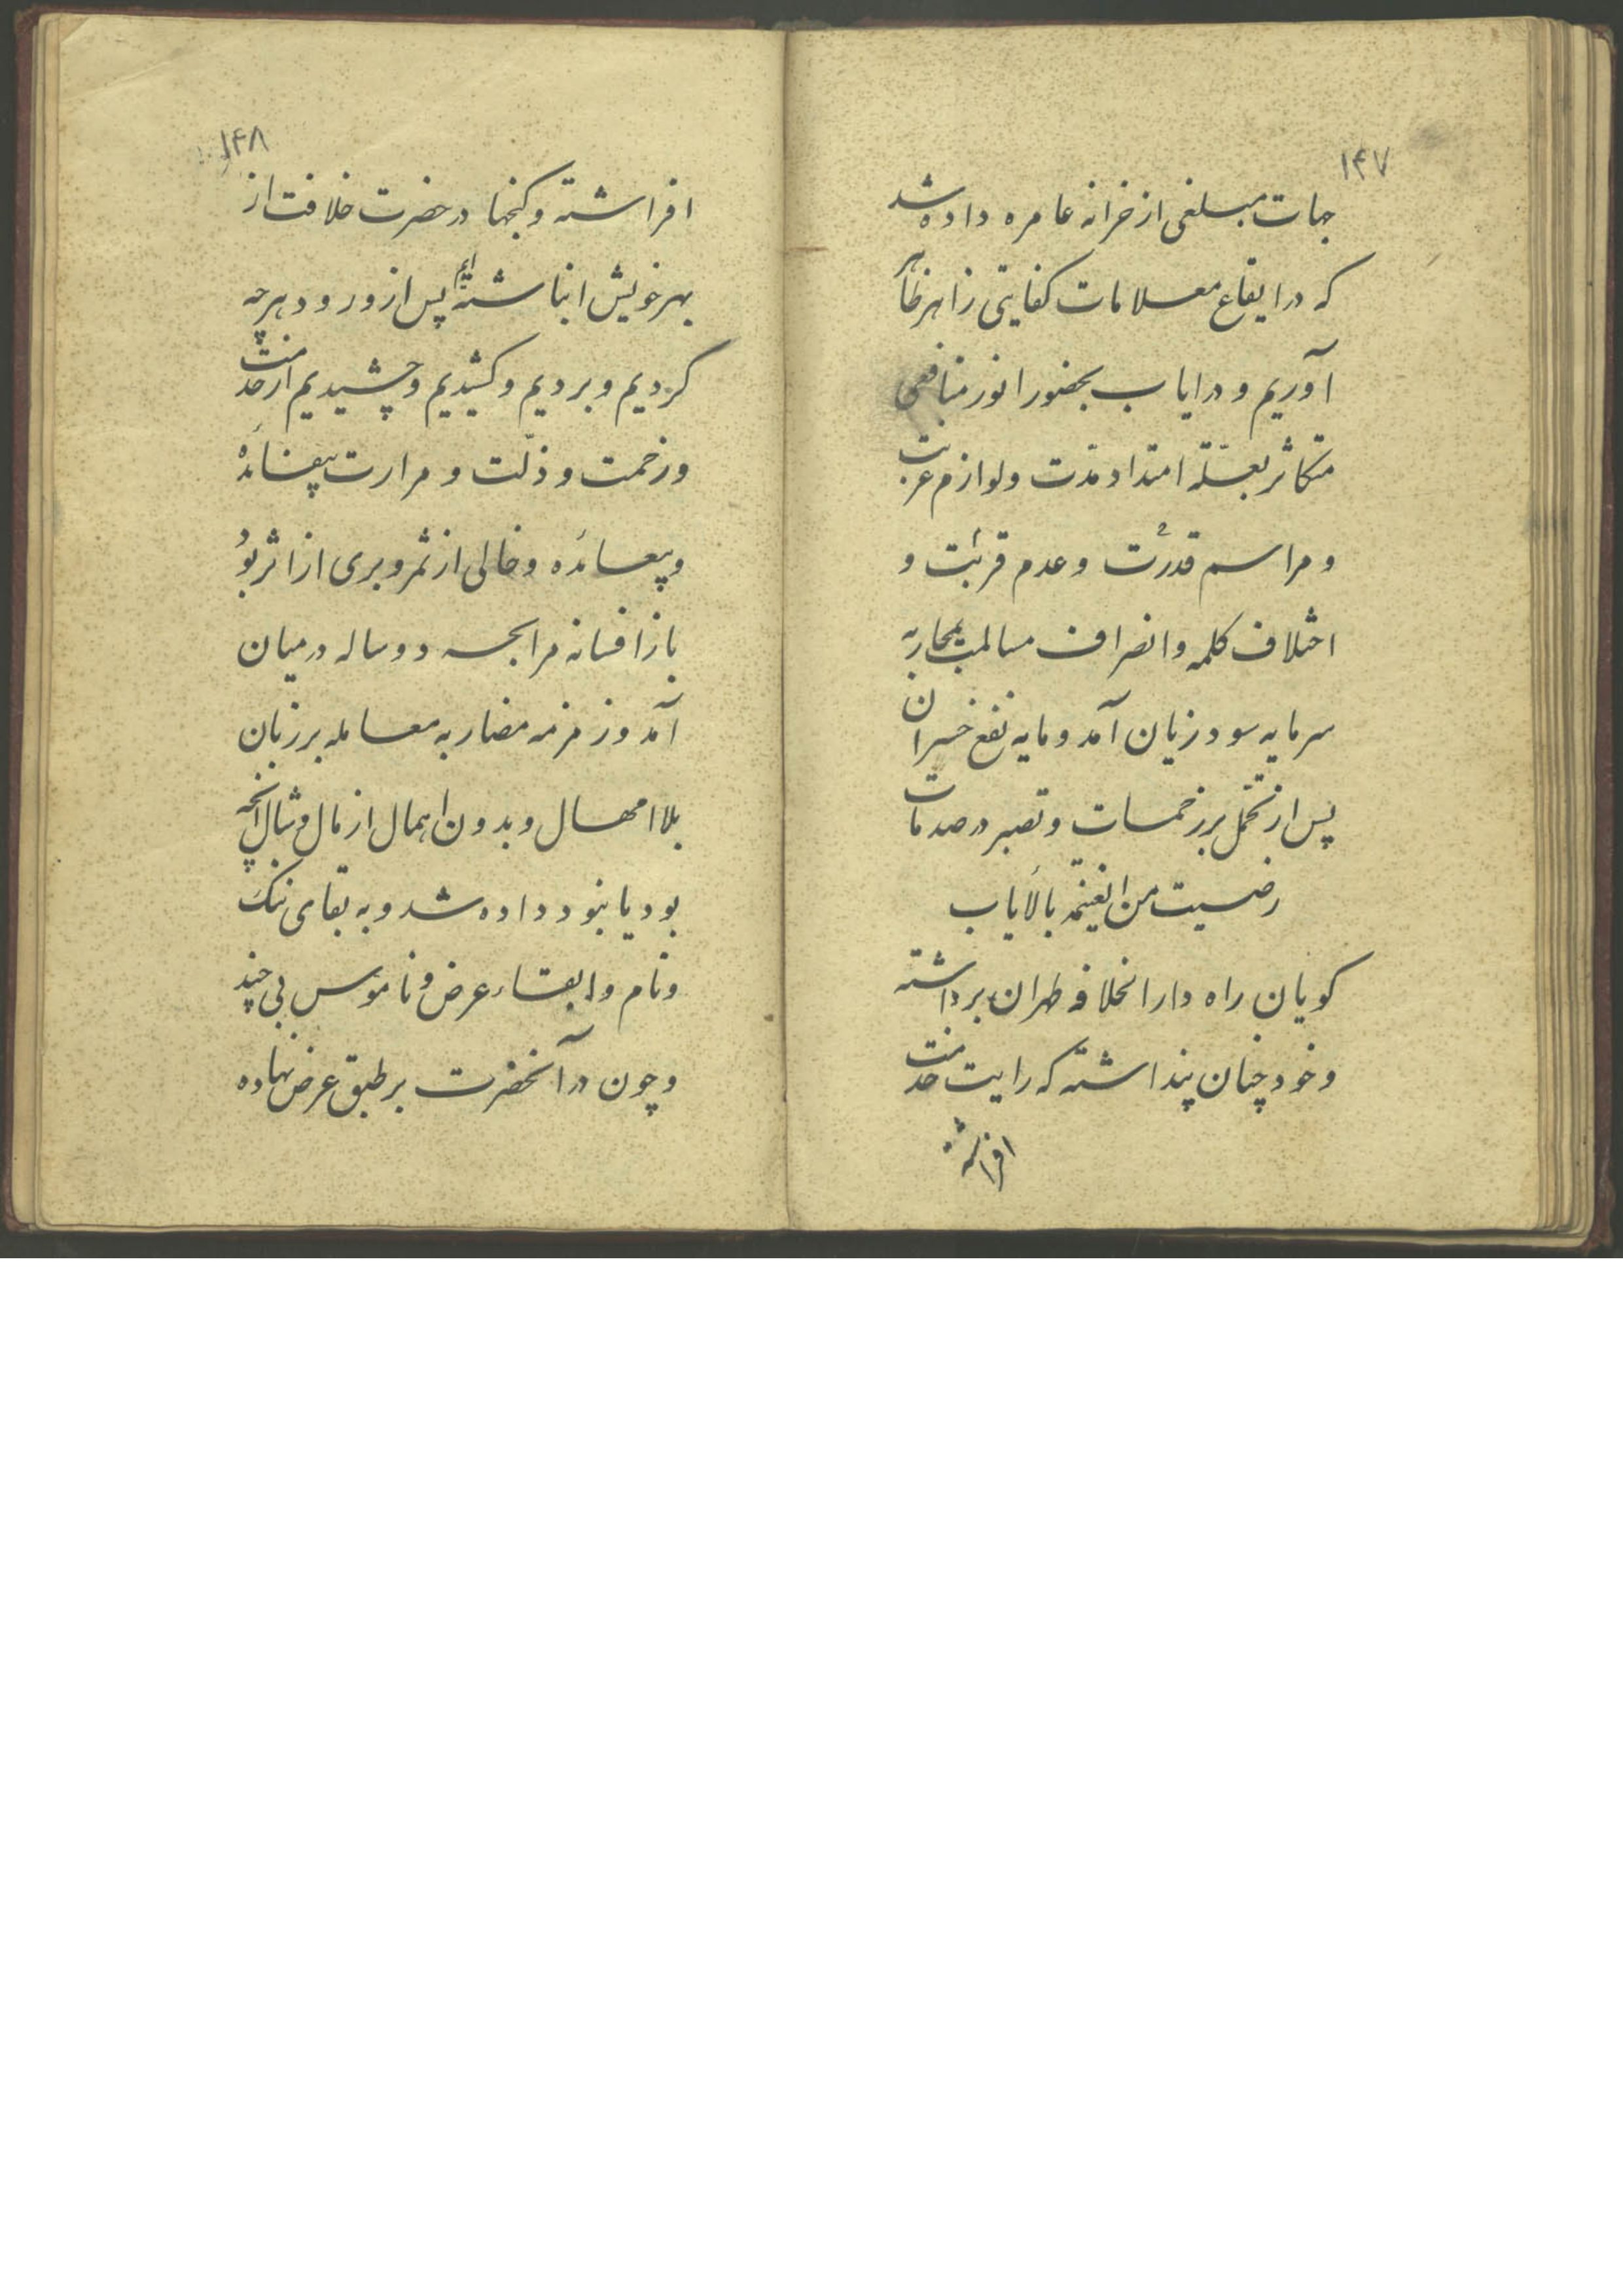 ۱۴۷
جهات مبلغی از خزانه عامره داده شد
که در ایقاع معلامات کفایتی زاهر ظاهر
آوریم و در ایاب بحضور انور منافعی
متکاثر بعلّة امتداد مدّت و لوازم غربت
و مراسم قدرت و عدم قربت و
اختلاف کلمه و انصراف مسالمت بمحاربه
سرمایه سود زیان آمد و مایه نفع خسران
پس از تحمل بر زحمات و تصبر در صدمات
رضیت من الغنیمة بالایاب
کویان راه دار الخلافه طهران برداشته
و خود چنان پنداشته که رایت خدمت
افراشته
۱۴۸
افراشته و کنجها در حضرت خلافت از
بهر خویش انباشته‌ایم پس از ورود هر چه
کردیم و بردیم و کشیدیم و چشیدیم از خدمت
و زحمت و ذلّت و مرارت بیفائده
و بیعائده و خالی از ثمر و بری از اثر بود
باز افسانه مرابحه دو ساله در میان
آمد و زمزمه مضاربه معامله بر زبان
بلا امهال و بدون اهمال از مال و منال آنچه
بود یا نبود داده شد و به بقای ننک
و نام و ابقاء عرض و ناموس بی چند
و چون در آنحضرت بر طبق عرض نهاده